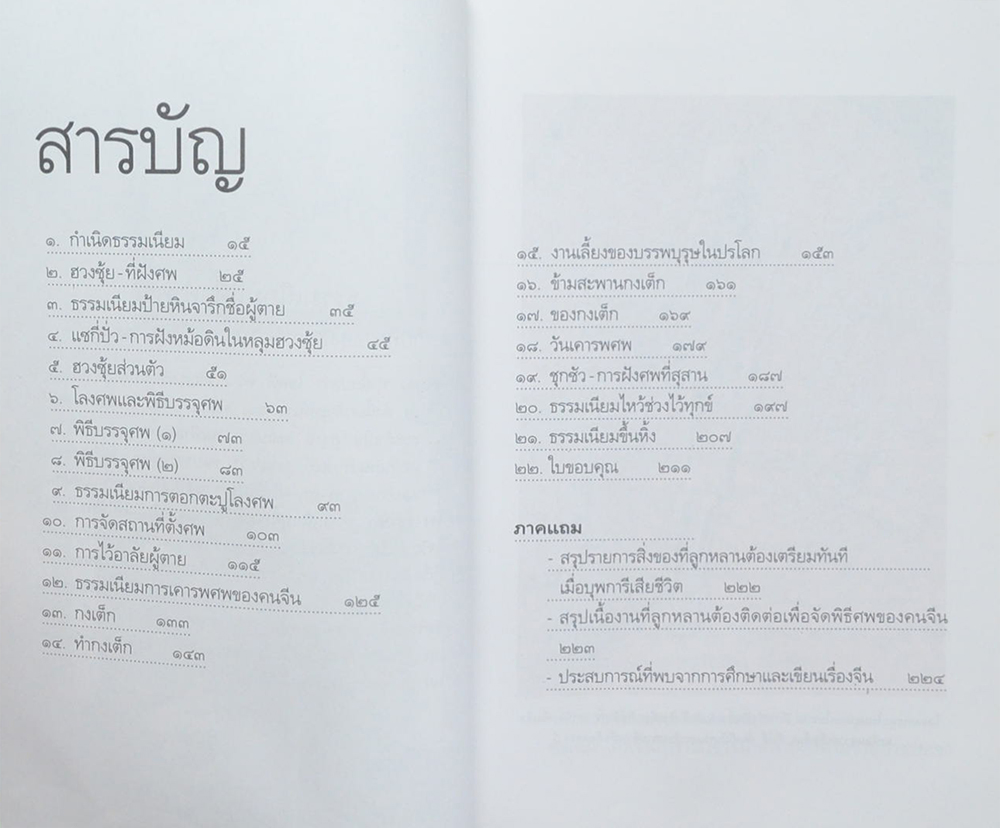 สารบัญ
๑. กำเนิดธรรมเนียม ๑๕
๒. ฮวงซุ้ย - ที่ฝังศพ ๒๕
๓. ธรรมเนียมป้ายหินจารึกชื่อผู้ตาย ๓๕
๔. แซกี่ปั่ว - การฝังหม้อดินในหลุมฮวงซุ้ย ๔๕
๕. ฮวงซุ้ยส่วนตัว ๕๑
๖. โลงศพและพิธีบรรจุศพ ๖๓
๗. พิธีบรรจุศพ (๑) ๗๓
๘. พิธีบรรจุศพ (๒) ๘๓
๙. ธรรมเนียมการตอกตะปูโลงศพ ๙๓
๑๐. การจัดสถานที่ตั้งศพ ๑๐๓
๑๑. การไว้อาลัยผู้ตาย ๑๑๕
๑๒. ธรรมเนียมการเคารพศพของคนจีน ๑๒๕
๑๓. กงเต็ก ๑๓๓
๑๔. ทำกงเต็ก ๑๔๓
๑๕. งานเลี้ยงของบรรพบุรุษในปรโลก ๑๕๓
๑๖. ข้ามสะพานกงเต็ก ๑๖๑
๑๗. ของกงเต็ก ๑๖๙
๑๘. วันเคารพศพ ๑๗๙
๑๙. ชุกซัว - การฝังศพที่สุสาน ๑๘๗
๒๐. ธรรมเนียมไหว้ช่วงไว้ทุกข์ ๑๙๗
๒๑. ธรรมเนียมขึ้นหิ้ง ๒๐๗
๒๒. ใบขอบคุณ ๒๑๑
ภาคแถม
- สรุปรายการสิ่งของที่ลูกหลานต้องเตรียมทันที
เมื่อบุพการีเสียชีวิต ๒๒๒
- สรุปเนื้องานที่ลูกหลานต้องติดต่อเพื่อจัดพิธีศพของคนจีน
๒๒๓
- ประสบการณ์ที่พบจากการศึกษาและเขียนเรื่องจีน ๒๒๔